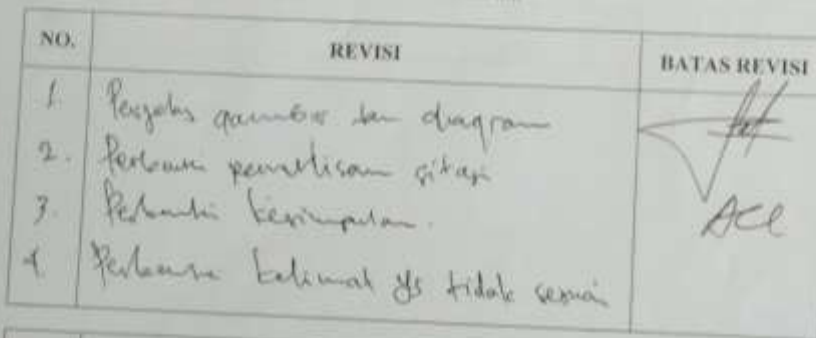 NO. REVISI BATAS REVISI
1. Perjelas gambar dan diagram
2. Perbaiki penulisan sitasi
3. Perbaiki kesimpulan.
4. Perbaiki kalimat yg tidak sesuai
ACC